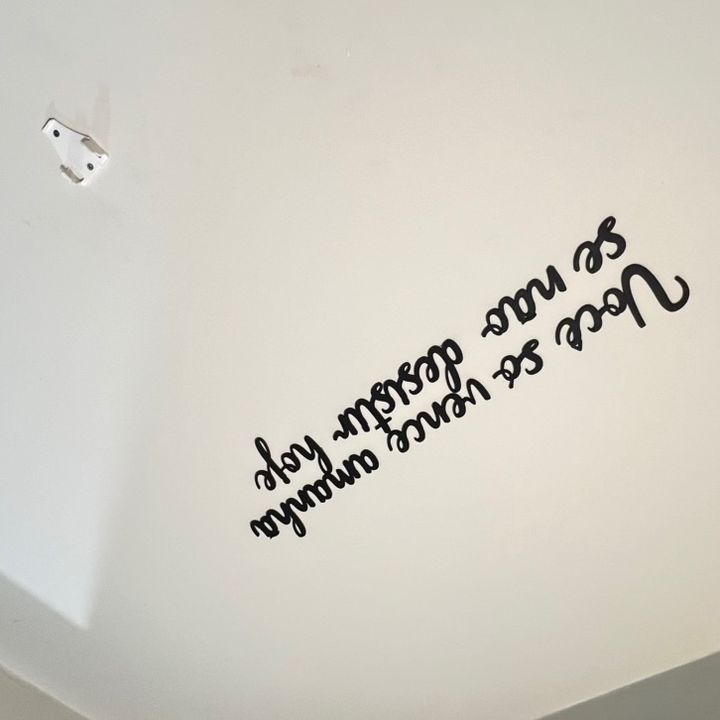 Voce so vence amanha
se não desistir hoje